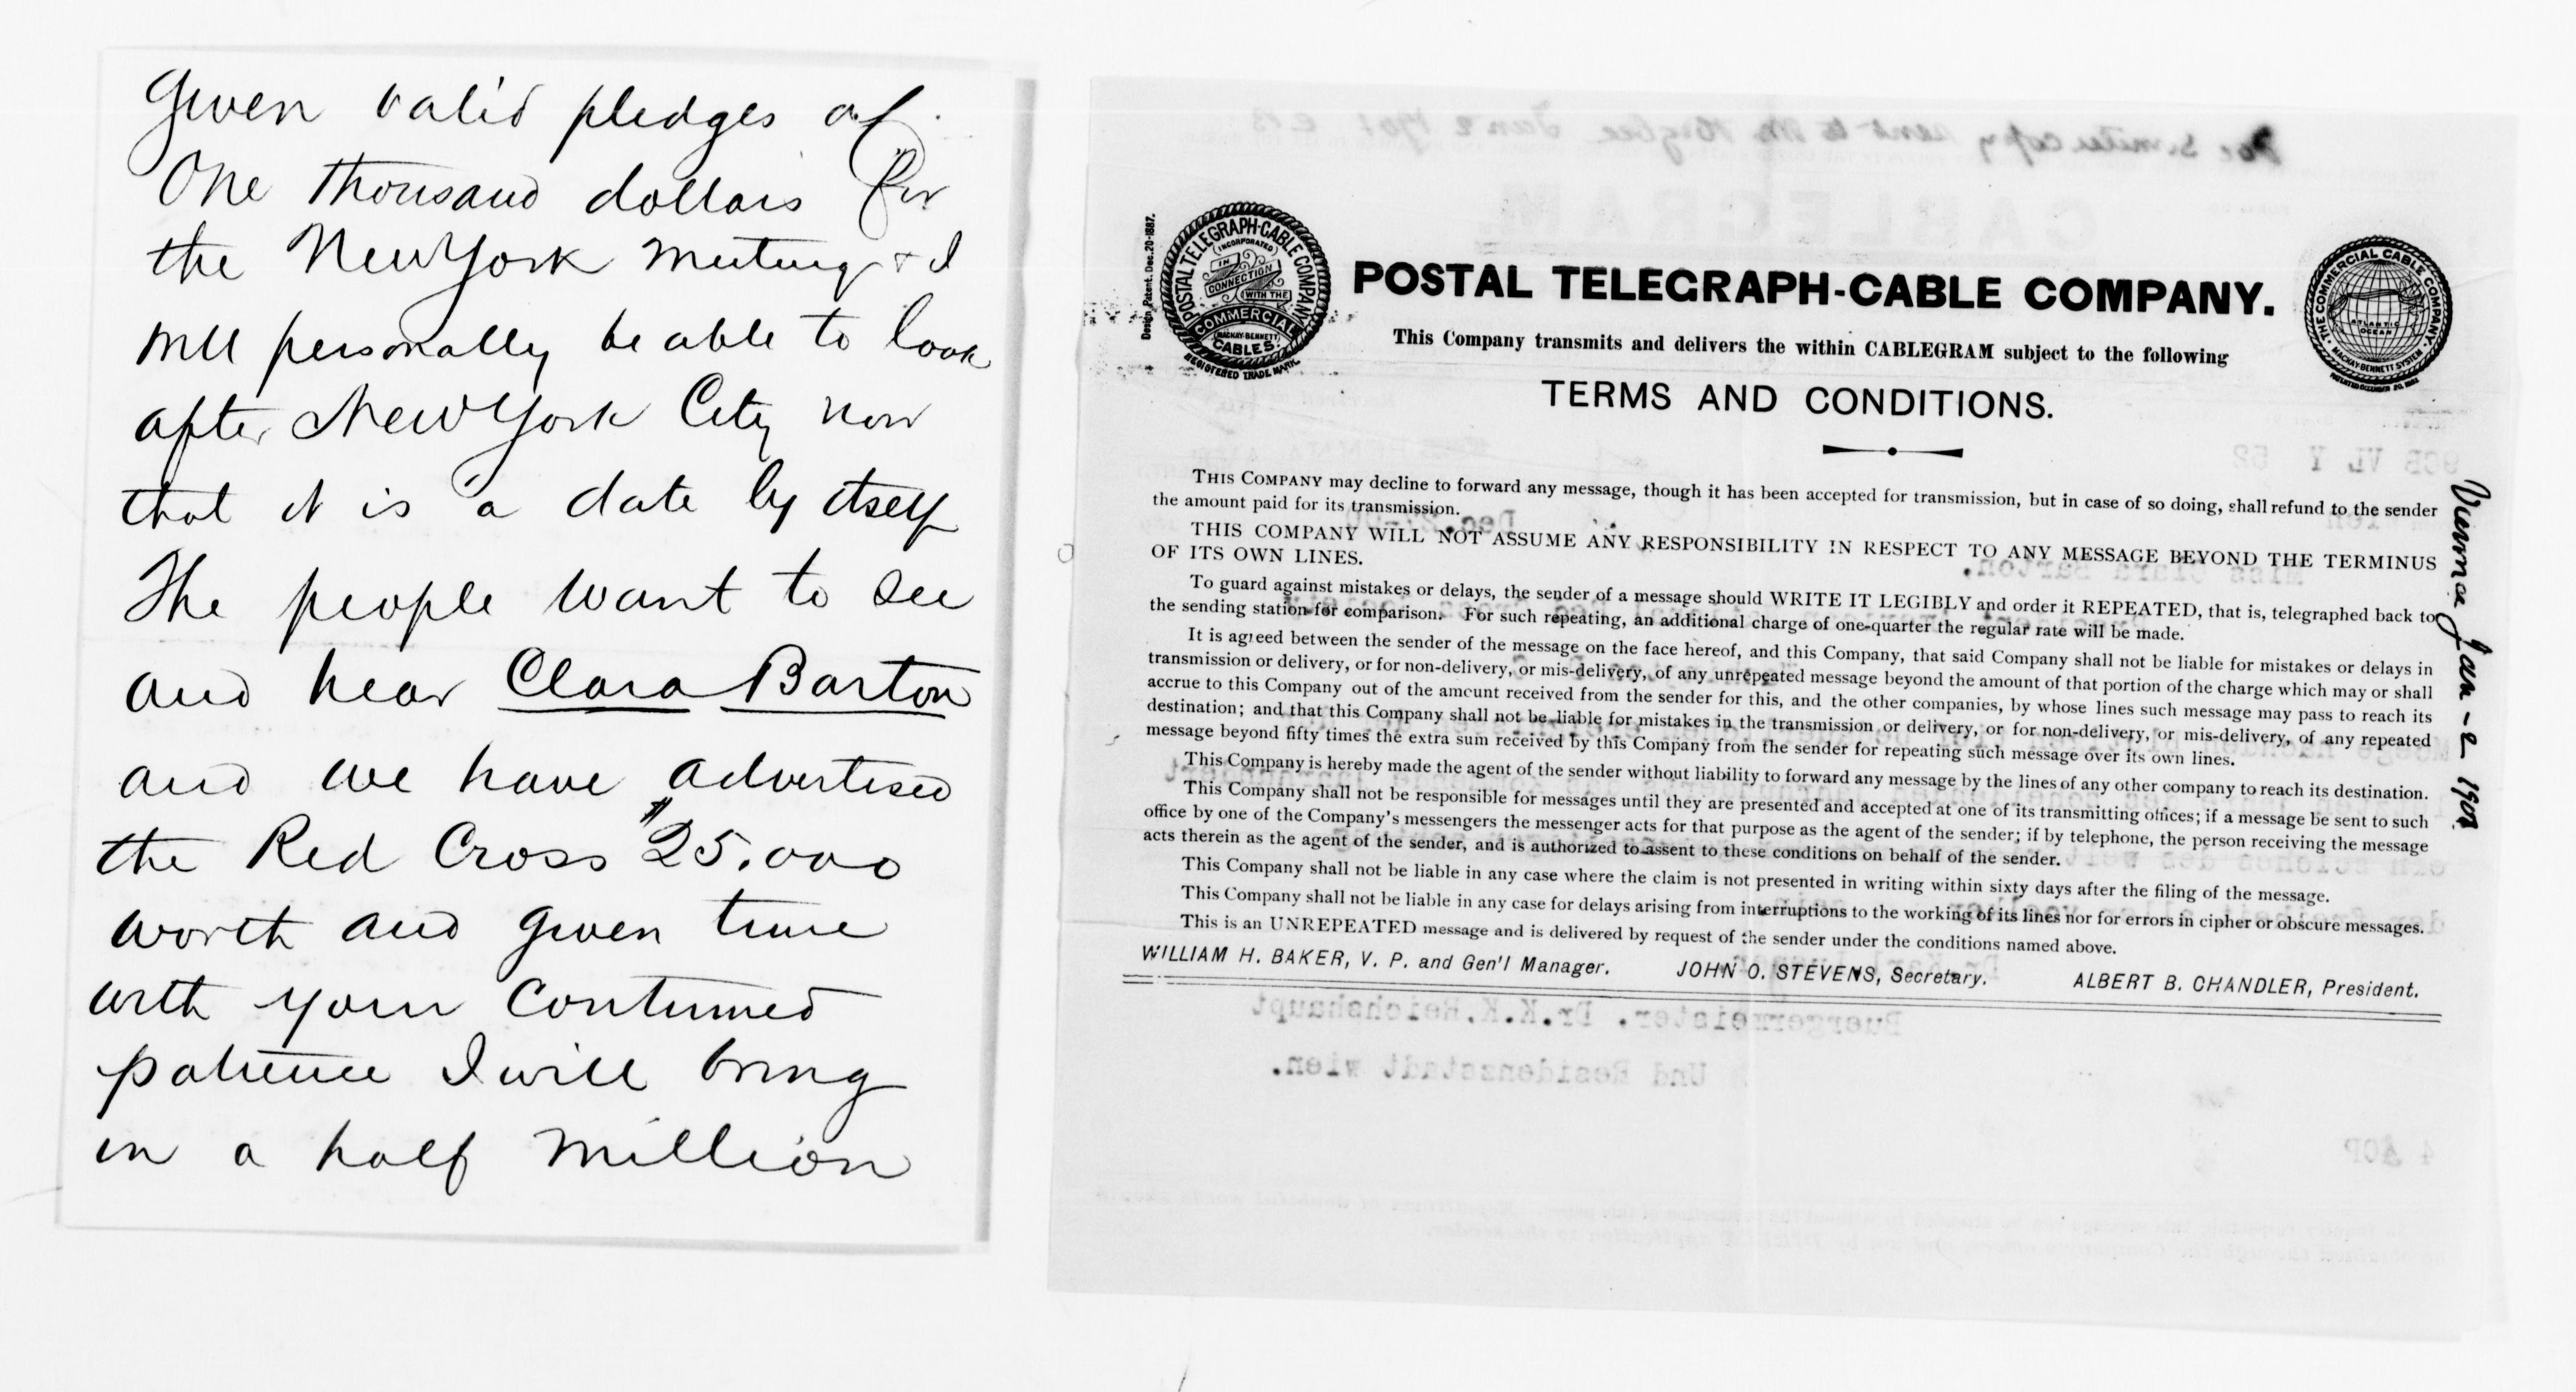 given valid pledges of
One thousand dollars for
the New York meeting + I
will personally be able to look
after New York City now
that it is a date by itself
The people want to see
and hear Clara Barton
and we have advertised
the Red Cross $25.000
worth and given time
with your continued
patience I will bring
in a half million
Fac simile copy sent to Mr Higbee Jan 2 1901 CB
Design Patent. Dec. 20-1887.
POSTAL TELEGRAPH-CABLE COMPANY
(INCORPORATED)
IN
CONNECTION
WITH THE
COMMERCIAL
MACKAY-BENNETT
CABLES.
REGISTERED TRADE MARK.
POSTAL TELEGRAPH-CABLE COMPANY.
This Company transmits and delivers the within CABLEGRAM subject to the following
TERMS AND CONDITIONS.
THE COMMERCIAL CABLE COMPANY.
ATLANTIC
OCEAN
MACKAY-BENNETT SYSTEM
THIS COMPANY may decline to forward any message, though it has been accepted for transmission, but in case of so doing, shall refund to the sender
the amount paid for its transmission.
THIS COMPANY WILL NOT ASSUME ANY RESPONSIBILITY IN RESPECT TO ANY MESSAGE BEYOND THE TERMINUS
OF ITS OWN LINES.
To guard against mistakes or delays, the sender of a message should WRITE IT LEGIBLY and order it REPEATED, that is, telegraphed back to
the sending station for comparison. For such repeating, an additional charge of one-quarter the regular rate will be made.
It is agreed between the sender of the message on the face hereof, and this Company, that said Company shall not be liable for mistakes or delays in
transmission or delivery, or for non-delivery, or mis-delivery, of any unrepeated message beyond the amount of that portion of the charge which may or shall
accrue to this Company out of the amount received from the sender for this, and the other companies, by whose lines such message may pass to reach its
destination; and that this Company shall not be liable for mistakes in the transmission or delivery, or for non-delivery, or mis-delivery, of any repeated
message beyond fifty times the extra sum received by this Company from the sender for repeating such message over its own lines.
This Company is hereby made the agent of the sender without liability to forward any message by the lines of any other company to reach its destination.
This Company shall not be responsible for messages until they are presented and accepted at one of its transmitting offices; if a message be sent to such
office by one of the Company's messengers the messenger acts for that purpose as the agent of the sender; if by telephone, the person receiving the message
acts therein as the agent of the sender, and is authorized to assent to these conditions on behalf of the sender.
This Company shall not be liable in any case where the claim is not presented in writing within sixty days after the filing of the message.
This Company shall not be liable in any case for delays arising from interruptions to the working of its lines nor for errors in cipher or obscure messages.
This is an UNREPEATED message and is delivered by request of the sender under the conditions named above.
WILLIAM H. BAKER, V. P. and Gen'l Manager. JOHN O. STEVENS, Secretary. ALBERT B. CHANDLER, President.
Buergermeister. Dr.K.K.Reichshaupt
Und Residenzstadt wien.
Vienna Jan - 2 1901